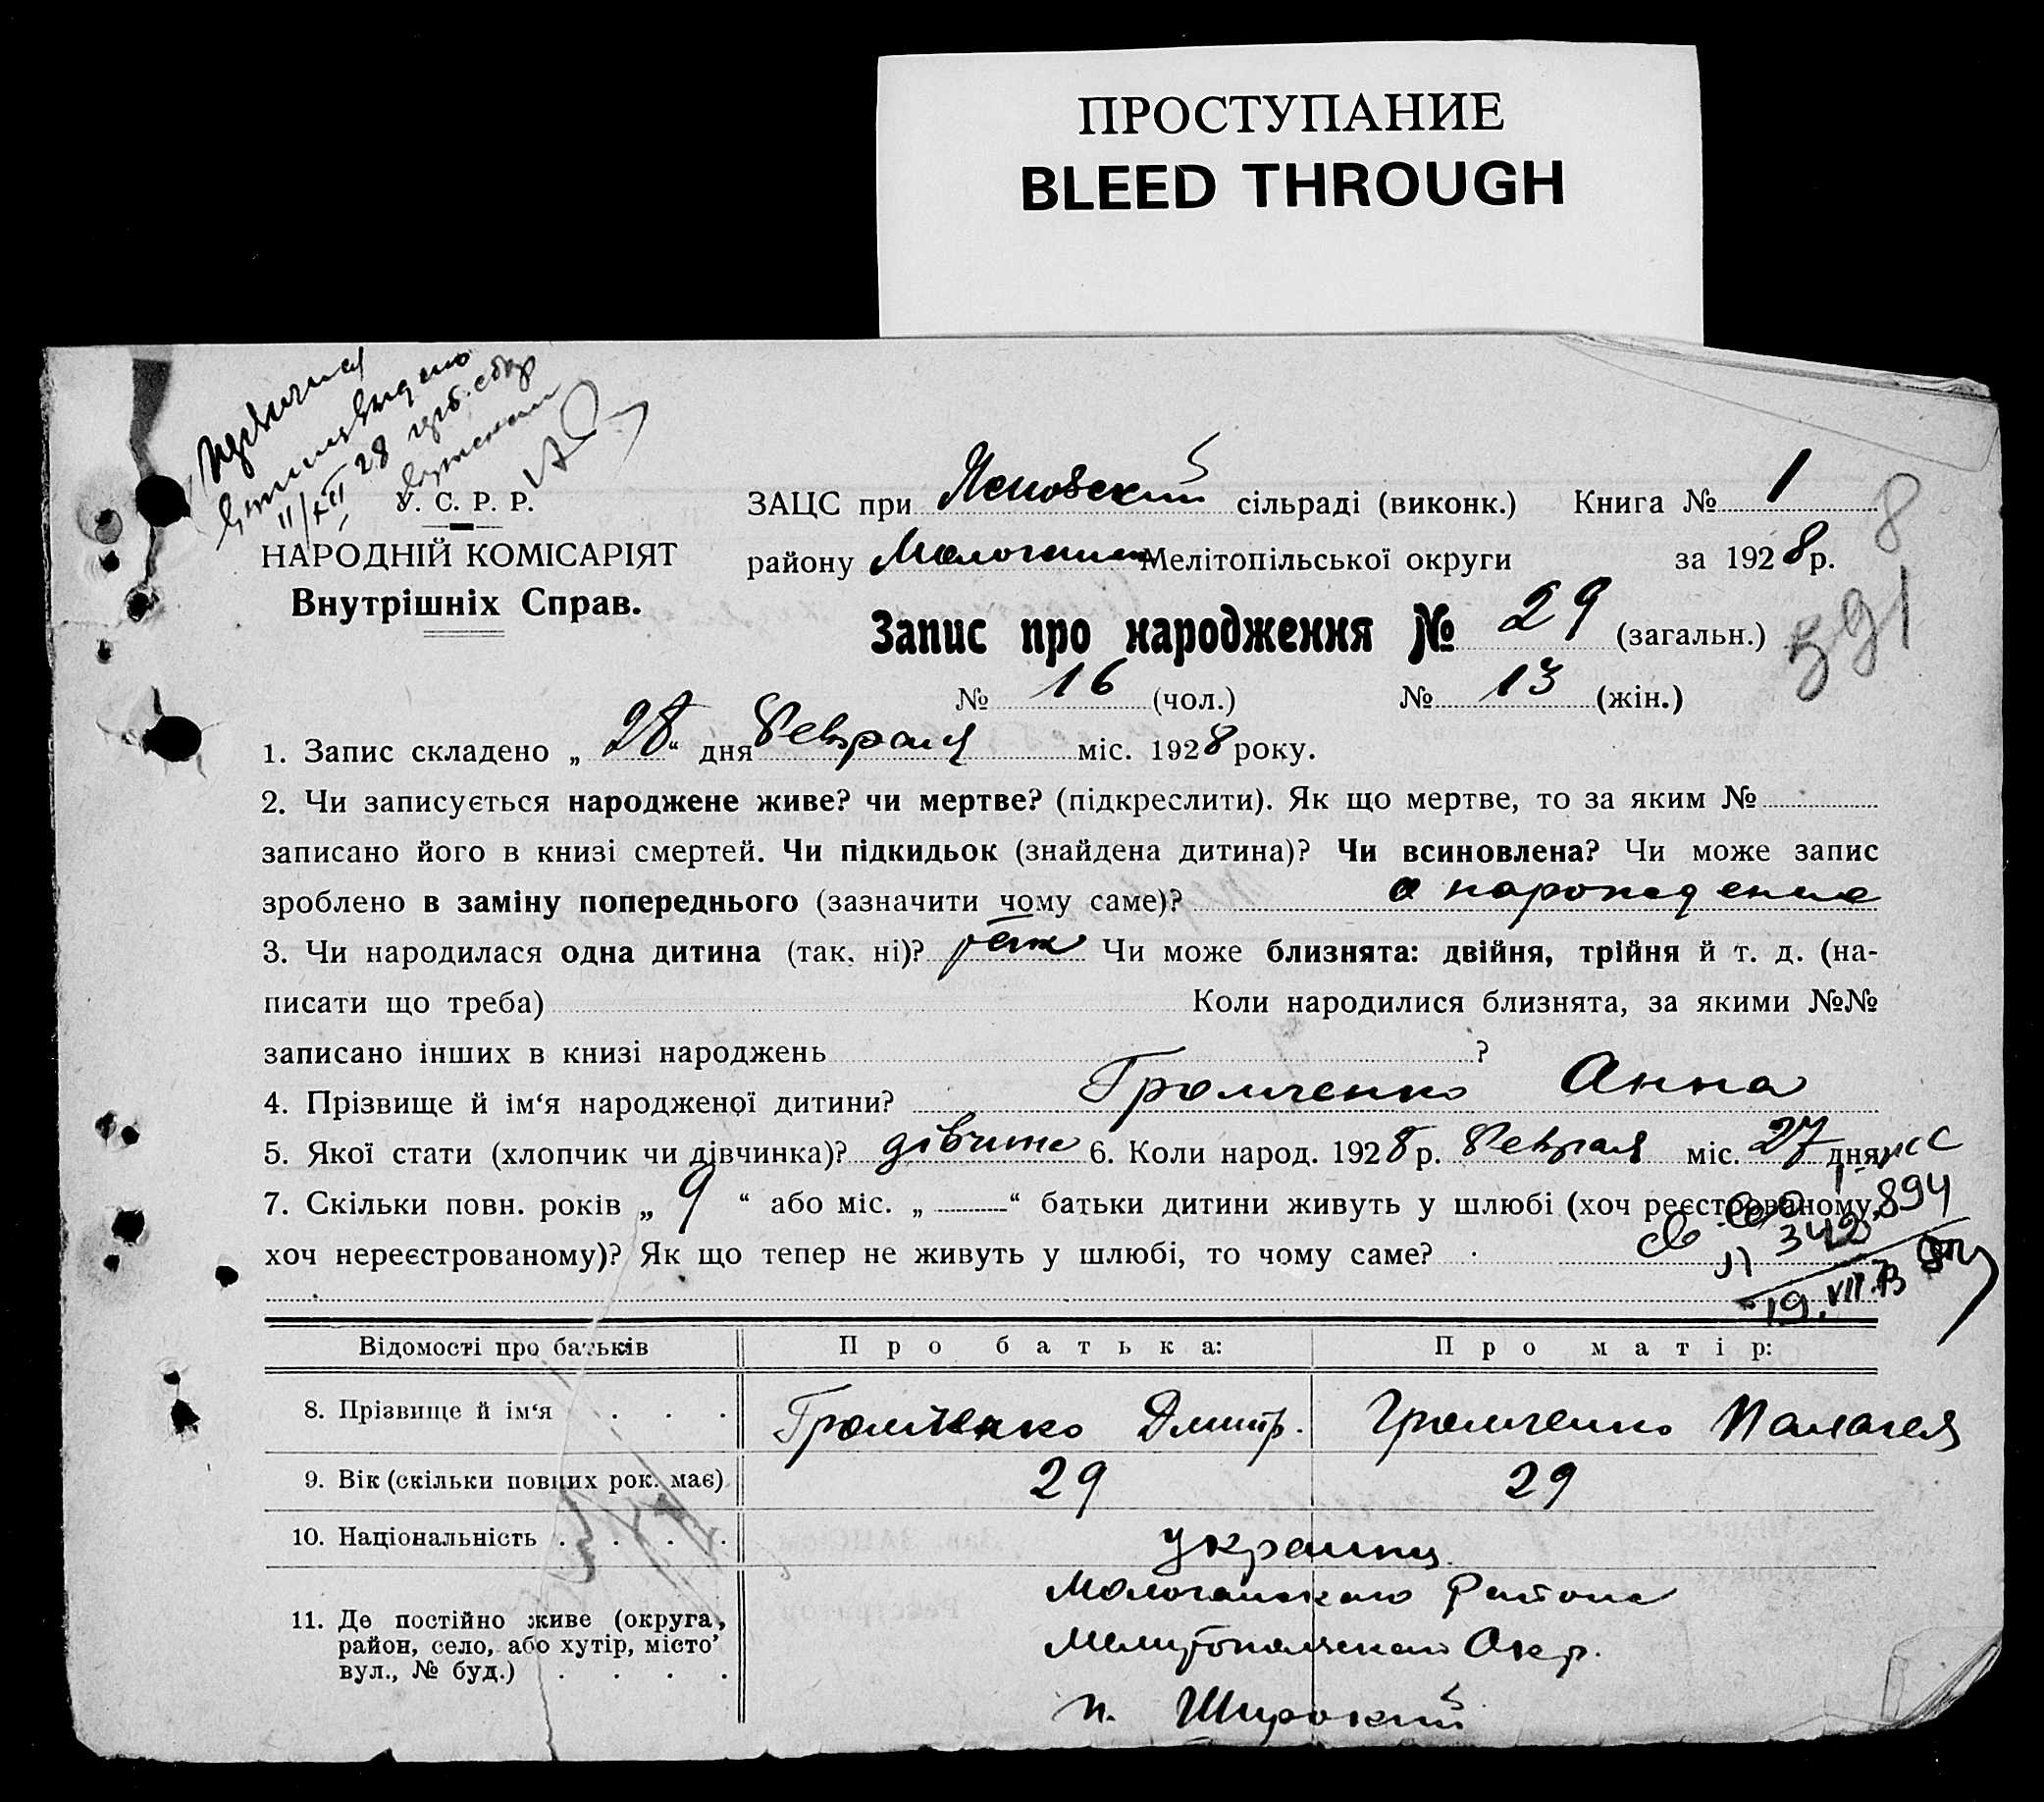 ПРОСТУПАНИЕ
BLEED THROUGH
28
У. С. Р. Р.
НАРОДНІЙ КОМІСАРІЯТ
Внутрішніх Справ.
ЗАЦС при Ясновский сільраді (виконк.) Книга № 1
8
району Мелітопільської округи за 1928 р.
Запис про народження № 29 (загальн.)
591
№ 16 (чол.) № 13 (жін.)
1. Запис складено „ 28 “ дня Февраля міс. 1928 року.
2. Чи записується народжене живе? чи мертве? (підкреслити). Як що мертве, то за яким №
записано його в книзі смертей. Чи підкидьок (знайдена дитина)? Чи всиновлена? Чи може запис
зроблено в заміну попереднього (зазначити чому саме)? о
3. Чи народилася одна дитина (так, ні)? Чи може близнята: двійня, трійня й т. д. (на-
писати що треба) Коли народилися близнята, за якими №№
записано інших в книзі народжень ?
4. Прізвище й ім‘я народженої дитини? Громченко Анна
5. Якої стати (хлопчик чи дівчинка)? дівчина 6. Коли народ. 1928 р. Февраля міс. 27 дня
7. Скільки повн. років „ 9 “ або міс. „ “ батьки дитини живуть у шлюбі (хоч реєстрованому,
894
хоч нереєстрованому)? Як що тепер не живуть у шлюбі, то чому саме?
342
19.VII.73
Відомості про батьків Про батька: Про матір:
8. Прізвище й ім‘я Громченко Дмитр. Громченко Палагея
9. Вік (скільки повних рок. має) 29 29
10. Національність украинц.
11. Де постійно живе (округа, Молочанского Района
район, село, або хутір, місто Мелитопольского Окр.
вул., № буд.) п. Широкий